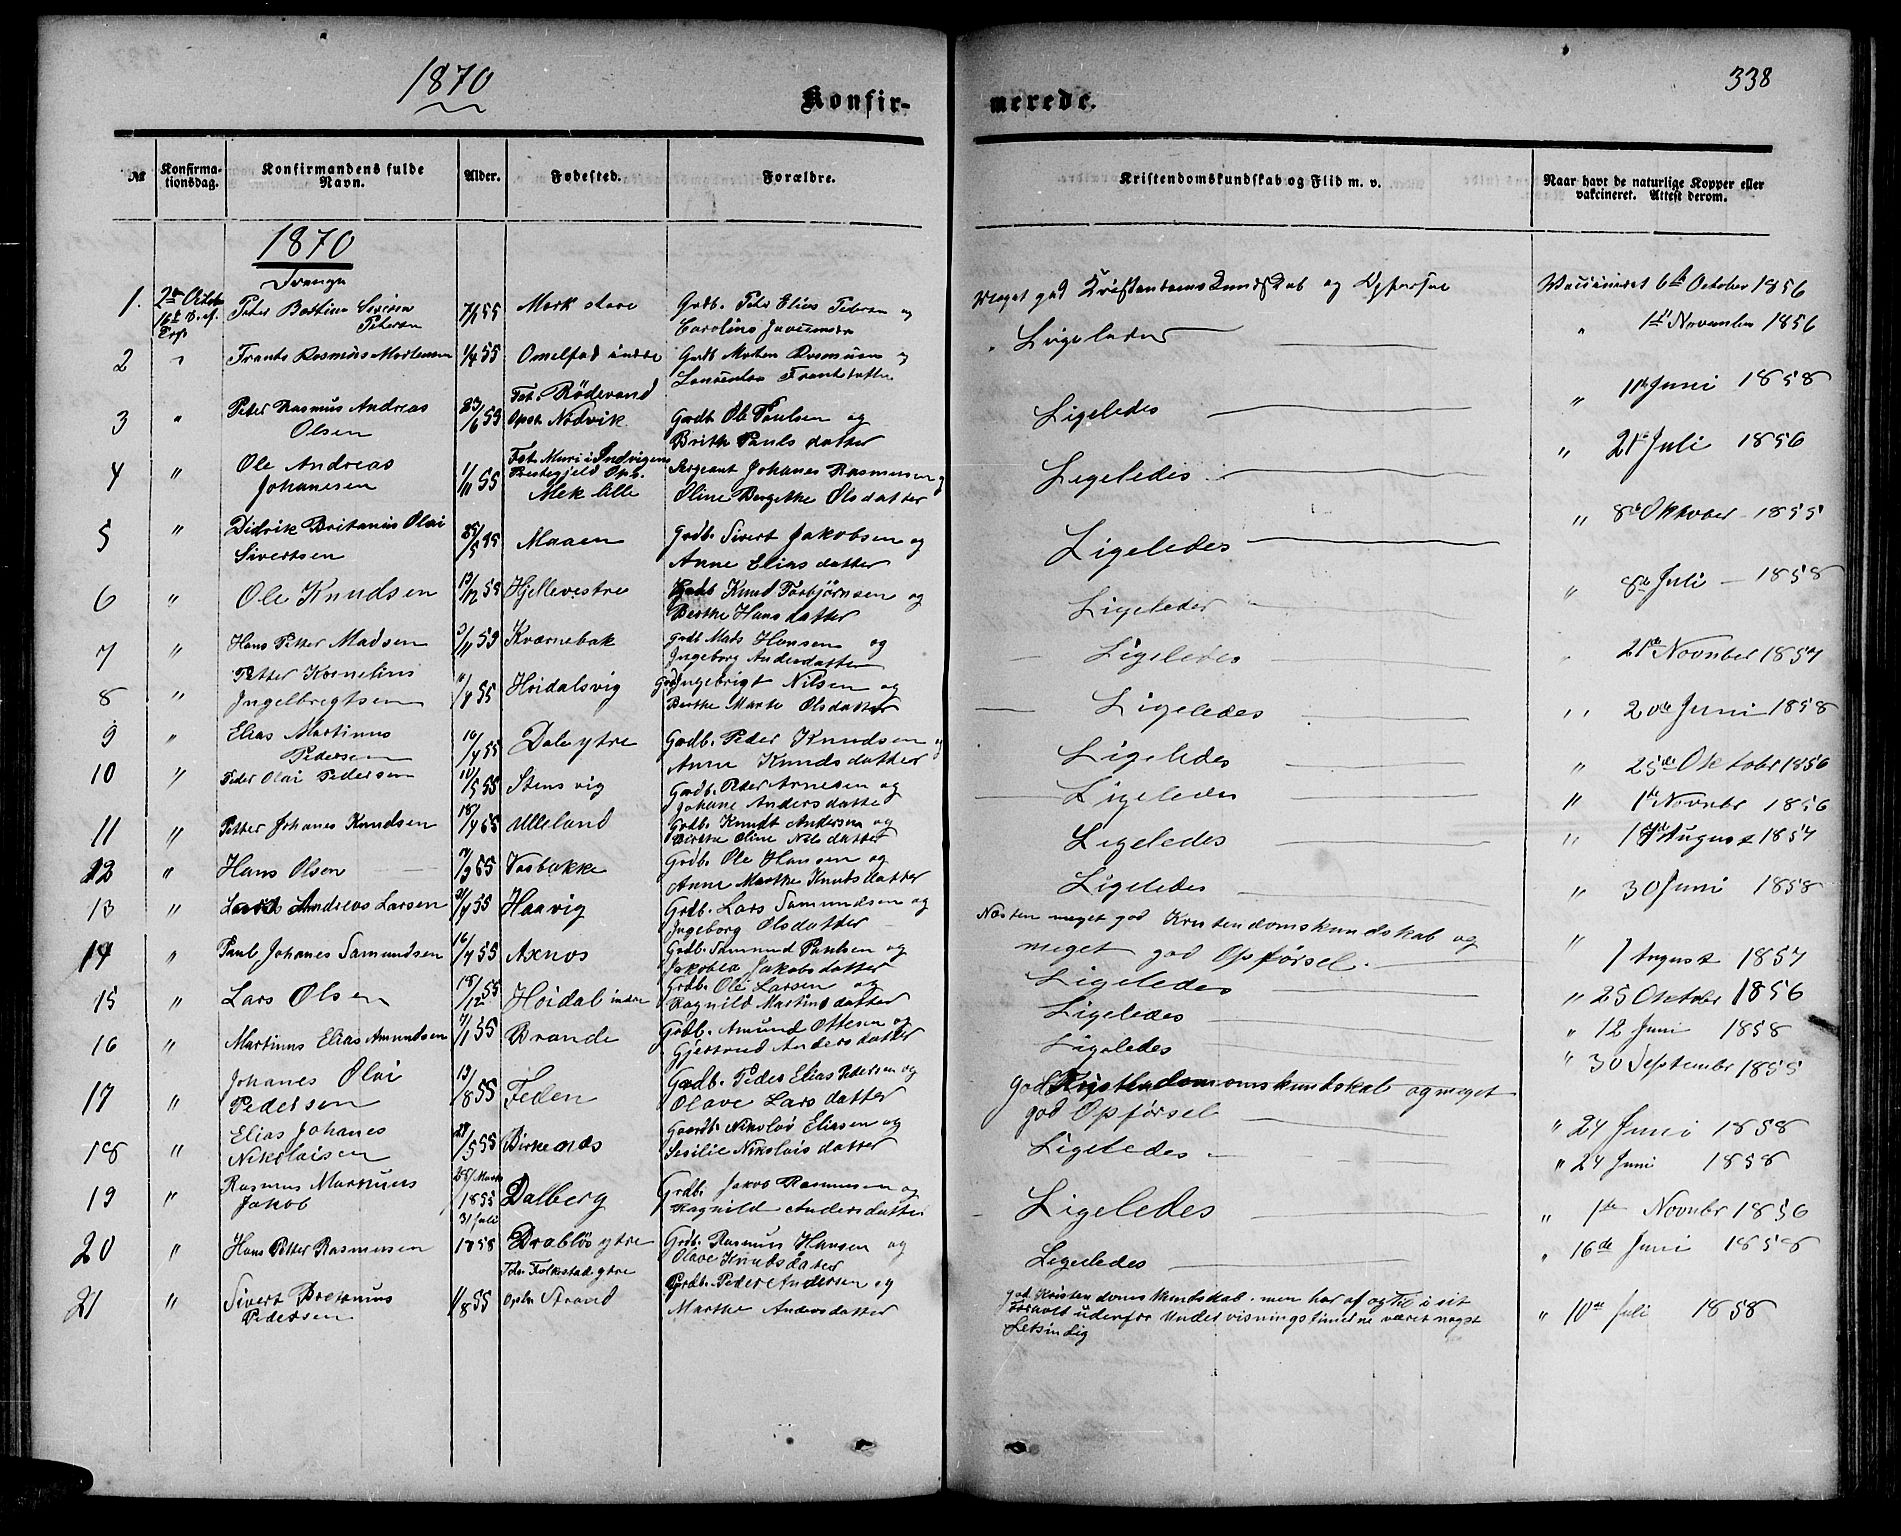 1870
Konfir-
merede.
338
№
Konfirma-
tionsdag.
Konfirmandens fulde
Navn.
Alder.
Fødested.
Forældre.
Kristendomskundskab og Flid m. v.
Naar havt de naturlige Kopper eller
vakcineret. Attest derom.
1870
Drenge
1. Peter 7/1 55 Mork store Grdb. Peter Elias Petersen og
Petersen
Meget god Kristendoms Kundskab og Opførsel
6te October 1856
2 " Frants Rasmus Mortensen 1/4 55 Grdb Morten Rasmusen og
Ligeledes " 1ste November 1856
3 " Peter Rasmus Andreas Olsen 23/6 55 Fød. Rødevand Opst Nodvik Grdb. Ole Paulsen og
Brithe Pauls datter
Ligeledes " 11te Juni 1858
4 " Ole Andreas Johanesen 1/11 55 Fød. Muri i Indvigens Prestegjeld Ops. Mek lille Sergeant Johanes Rasmusen og
Oline Bergithe Olsdatter
Ligeledes " 21de Juli 1856
5 " Didrik Britanius Olai Sivertsen 25/5 55 Maaen Grdb. Sivert Jakobsen og
Anne Elias datter
Ligeledes " 8de Oktober 1855
6 " Ole Knudsen 13/12 55 Hjellevestre Grdb Knud Torbjørnsen og
Berthe Hans datter
Ligeledes " 8de Juli 1858
7 " Hans Petter Madsen 3/11 55 Kværnebak Grdb Mads Hansen og
Ingeborg Andersdatter
Ligeledes " 21de Novnber 1857
8 " Petter Kornelius Ingelbregtsen 11/4 55 Høidalsvig Grdb Ingebrigt Nilsen og
Berthe Marte Olsdatter
Ligeledes " 20de Juni 1858
9 " Elias Martinus Pedersen 16/4 55 Dale ytre Grdb. Peder Knudsen og
Anne Knudsdatter
Ligeledes " 25de Oktober 1856
10 " Peder Olai Pedersen 10/5 55 Stensvig Grdb. Peder Arnesen og
Johane Andersdatte
Ligeledes " 1ste Novnbr 1856
11 " Petter Johanes Knudsen 18/4 55 Ulleland Grdb. Knudt Andersen og
Berthe Oline Nils datter
Ligeledes " August 1857
12 " Hans Olsen 55 Vasbakke Grdb. Ole Hansen og
Anne Marthe Knutsdatter
Ligeledes " 30 Juni 1858
13 " Andreas Larsen 21/4 55 Haavig Grdb. Lars Samundsen og
Ingeborg Olsdatter
Næsten meget god Kristendomskundskab og
meget god Opførsel.
" 1 August 1857
14 " Paul Johanes Samundsen 16/4 55 Axnos Grdb. Samund Paulsen og
Jakobea Jakobs datter
Ligeledes " 25 Oktobr 1856
15 " Lars Olsen 18/12 55 Høidal indre Grdb. Ole Larsen og
Ragnild Martins datter
Ligeledes " 12 Juni 1858
16 " Martinus Elias Amundsen 7/1 55 Brande Grdb. Amund Ottesen og
Gjertrud Andersdatter
Ligeledes " 30 Septembr 1855
17 " Johanes Olai Pedersen 13/8 55 Feden Grdb. Peder Elias Pedersen og
Olave Lars datter
god Kristendomomskundskab og meget
god Opførsel
" 24 Juni 1858
18 " Elias Johanes Nikolaisen 28/5 55 Birkenæs Gaardb. Nikolai Eliasen og
Sesilie Nikolais datter
Ligeledes " 24 Juni 1858
19 " Rasmus Marknus Jakob 28/ Marts 1855 Dalberg Grdb. Jakob Rasmusen og
Ragnild Andersdatter
Ligeledes " 1ste Novnbr 1856
20 " Hans Petter Rasmusen 31 Juli 1855 Drabløs ytre Grdb. Rasmus Hansen og
Olave Knudsdater
Ligeledes " 16de Juni 1858
21 " Sivert Pedersen 1/8 55 Fdt. Folkstad ytre Opdr Strand Grdb. Peder Andersen og
Marthe Andersdatter
god Kristendoms Kundskab. men har af og til i sit
Forhold udenfor Undervisningstimerne været noget
Letsindig
" 10de Juli 1858